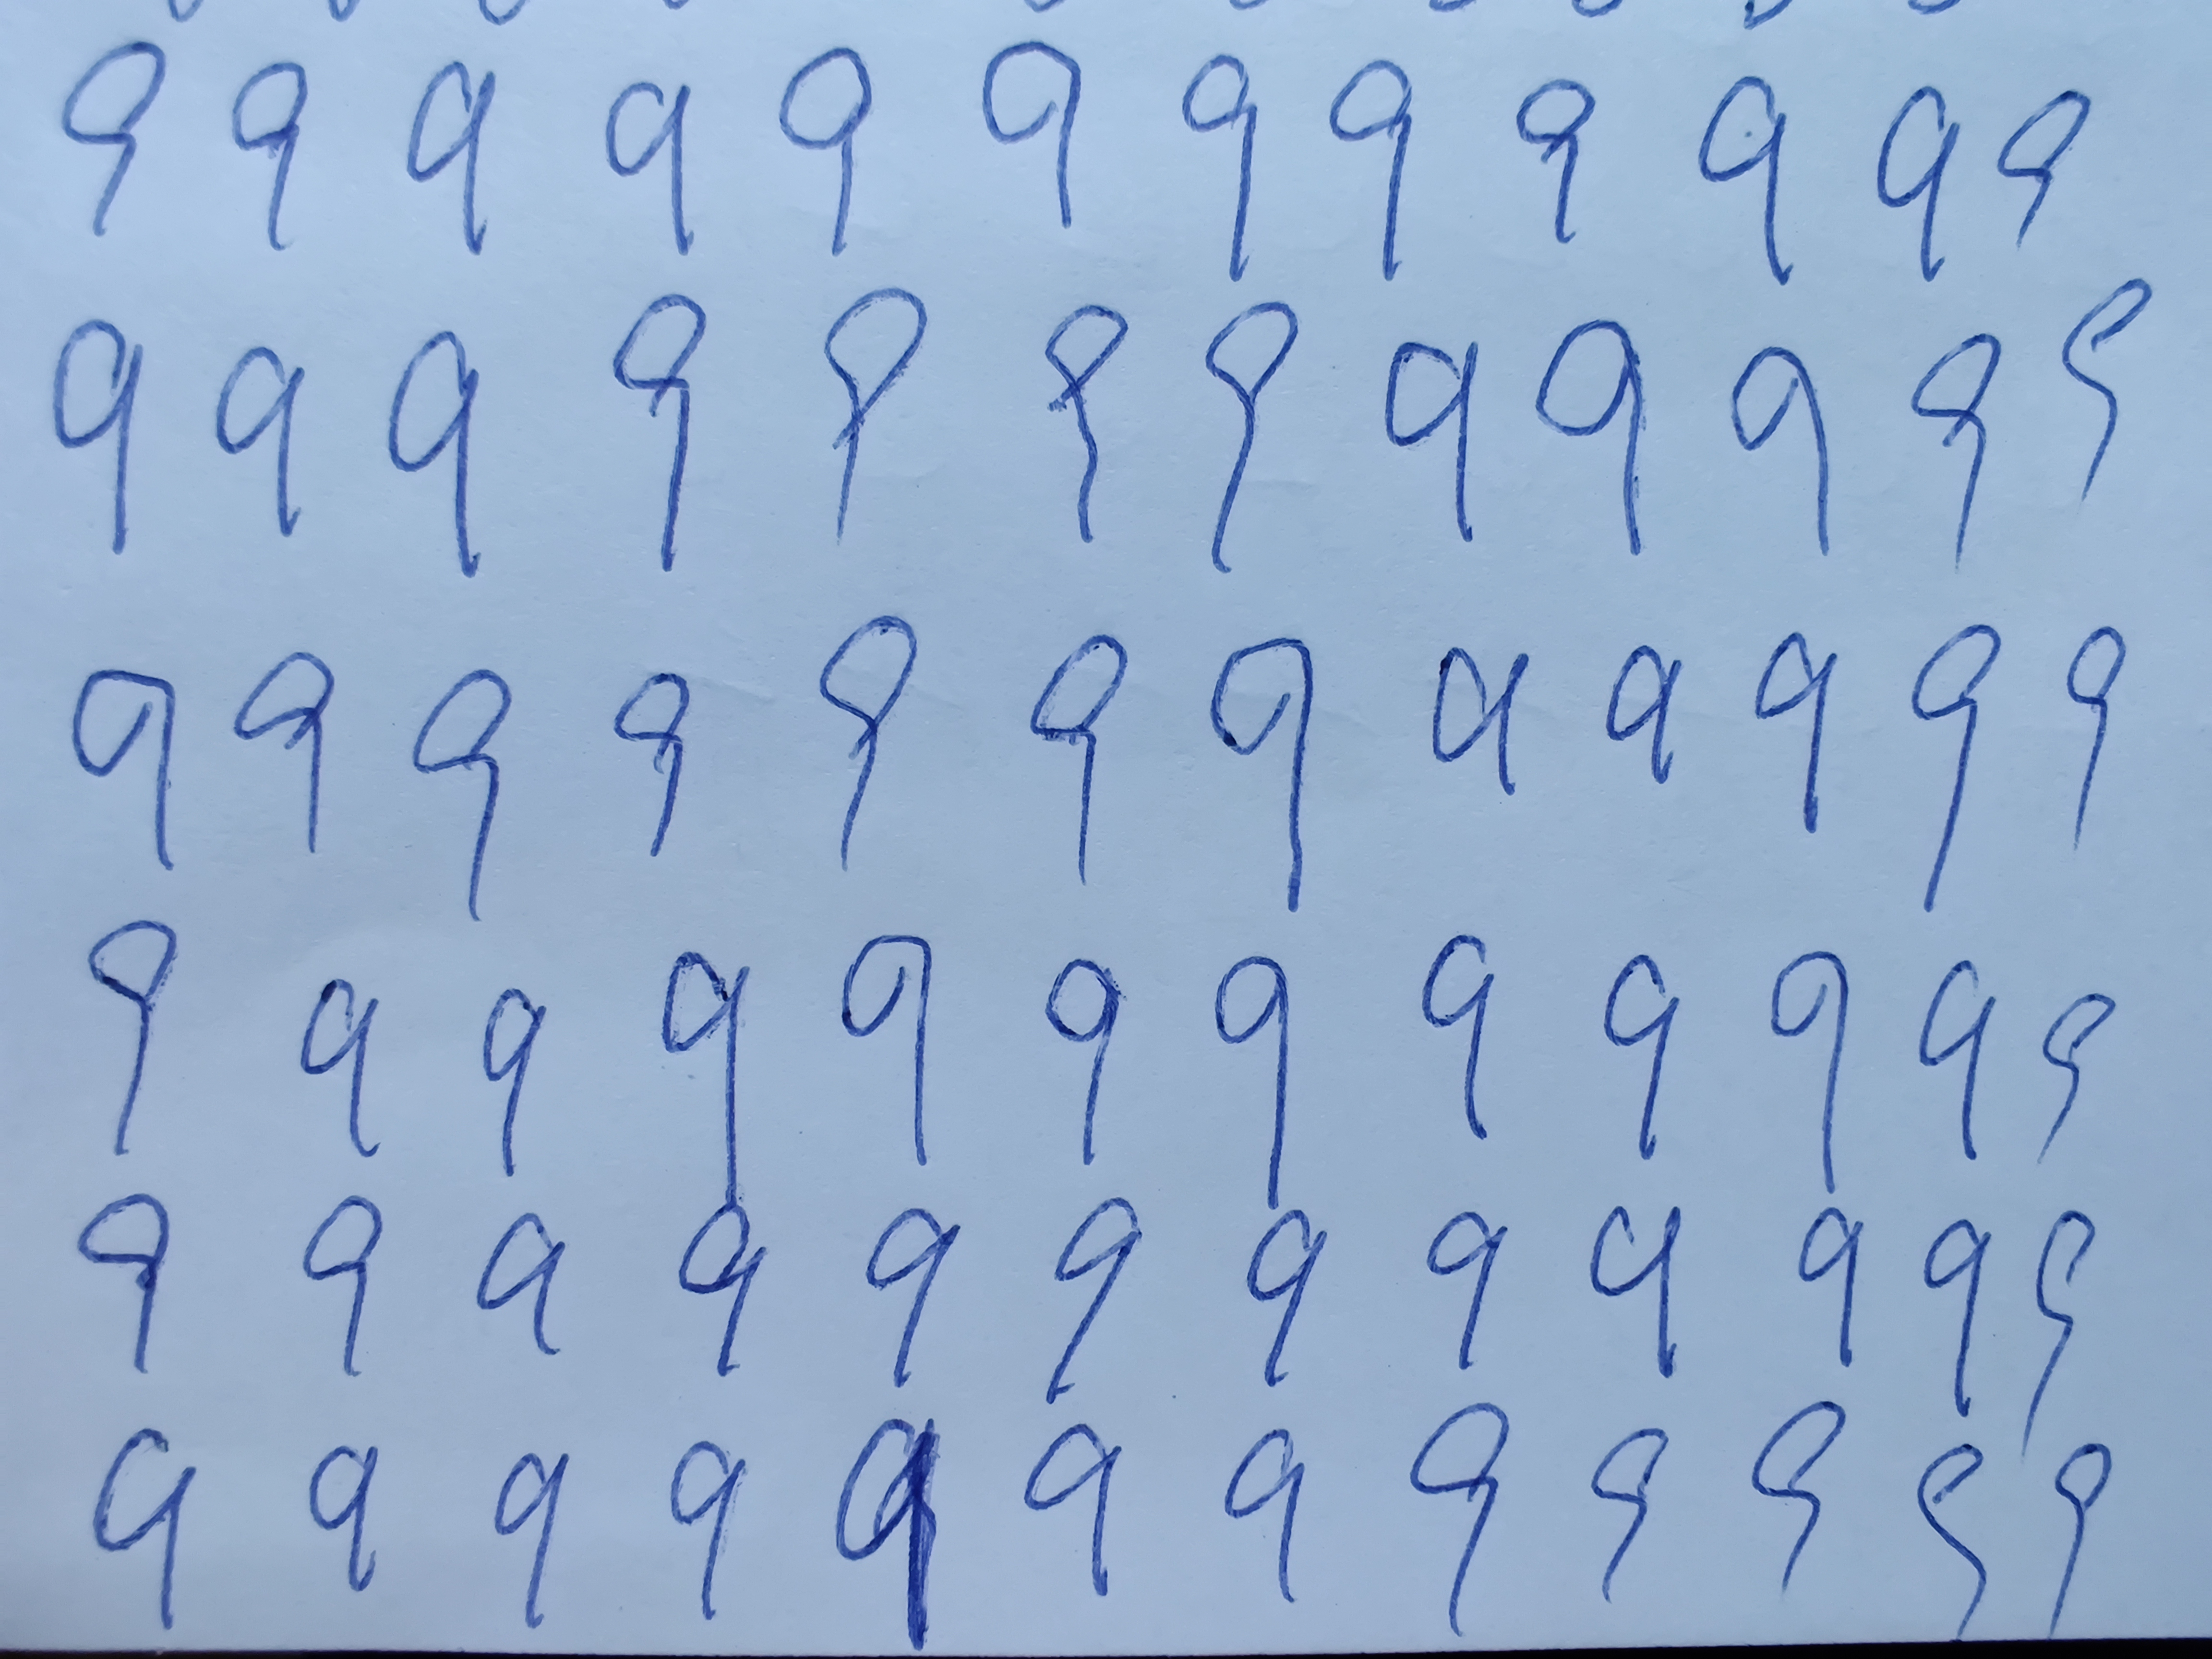 9 9 9 9 9 9 9 9 9 9 9 9
9 9 9 9 9 9 9 9 9 9 9 9
9 9 9 9 9 9 9 9 9 9 9 9
9 9 9 9 9 9 9 9 9 9 9 9
9 9 9 9 9 9 9 9 9 9 9 9
9 9 9 9 9 9 9 9 9 9 9 9